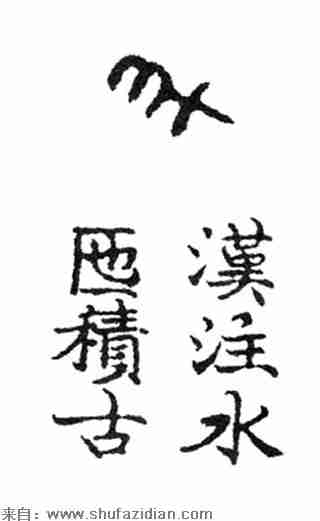 漢注水
匜積古
来自：www.shufazidian.com